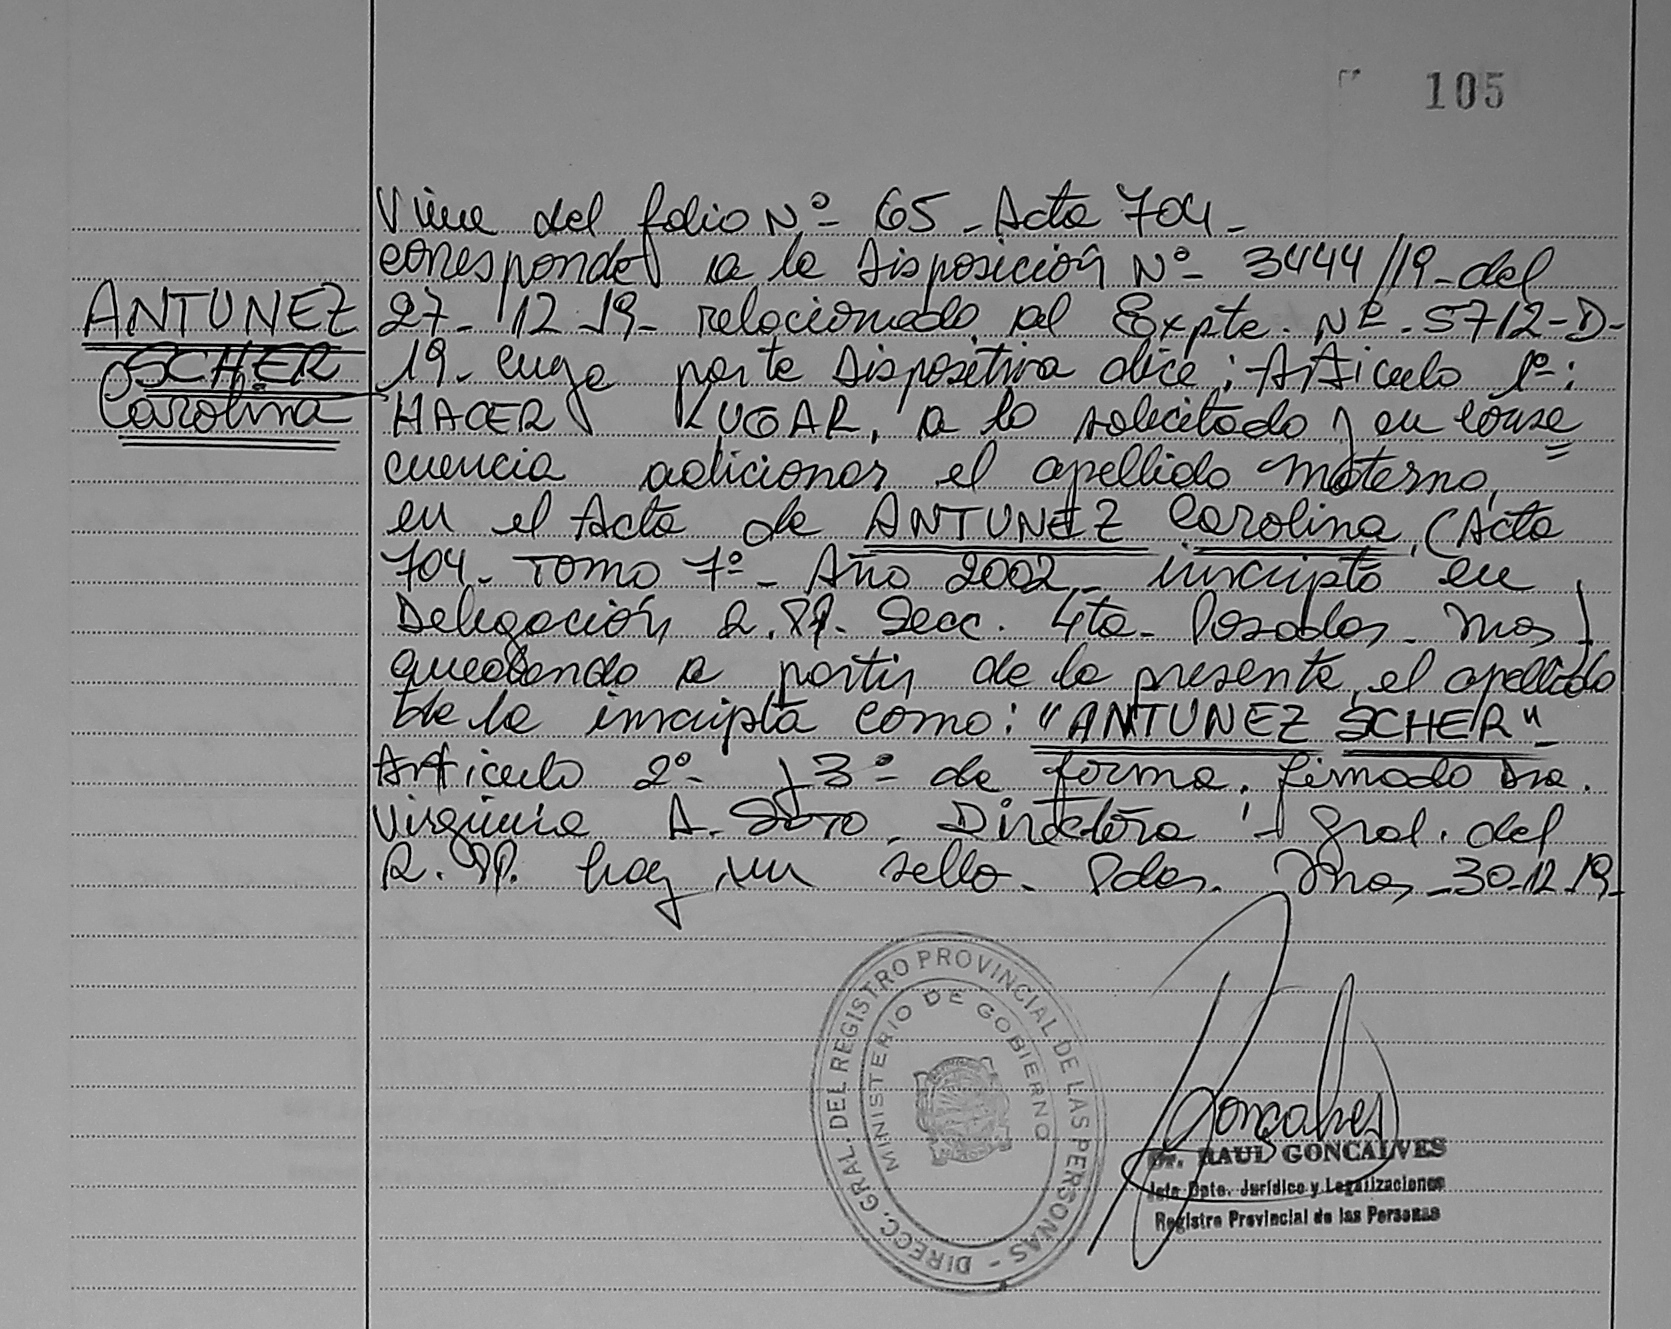 105
Viene del folio Nº- 65 - Acta 704 -
corresponde a la Disposición Nº- 3444/19- del
ANTUNEZ
27- 12-19- relacionado al Expte. Nº- 5712-D-
SCHER
19- cuya parte Dispositiva dice: Articulo 1º:
Carolina
HACER LUGAR, a lo solicitado y en conse=
cuencia adicionar el apellido materno,
en el Acta de ANTUNEZ Carolina, (Acta
704- Tomo 7º- Año 2002- inscripta en
Delegación R.PP. Secc. 4ta- Posadas- Mnes)
quedando a partir de la presente, el apellido
de la inscripta como: "ANTUNEZ SCHER"-
Articulo 2º- y 3º- de forma. firmado Dra.
Virginia A. Soto. Directora Gral. del
R.PP. hay un sello. Pdas. Mnes -30-12-19-
DIRECC. GRAL. DEL REGISTRO PROVINCIAL DE LAS PERSONAS -
MINISTERIO DE GOBIERNO
Goncalves
Dr. RAUL GONCALVES
Jefe Dpto. Jurídico y Legalizaciones
Registro Provincial de las Personas